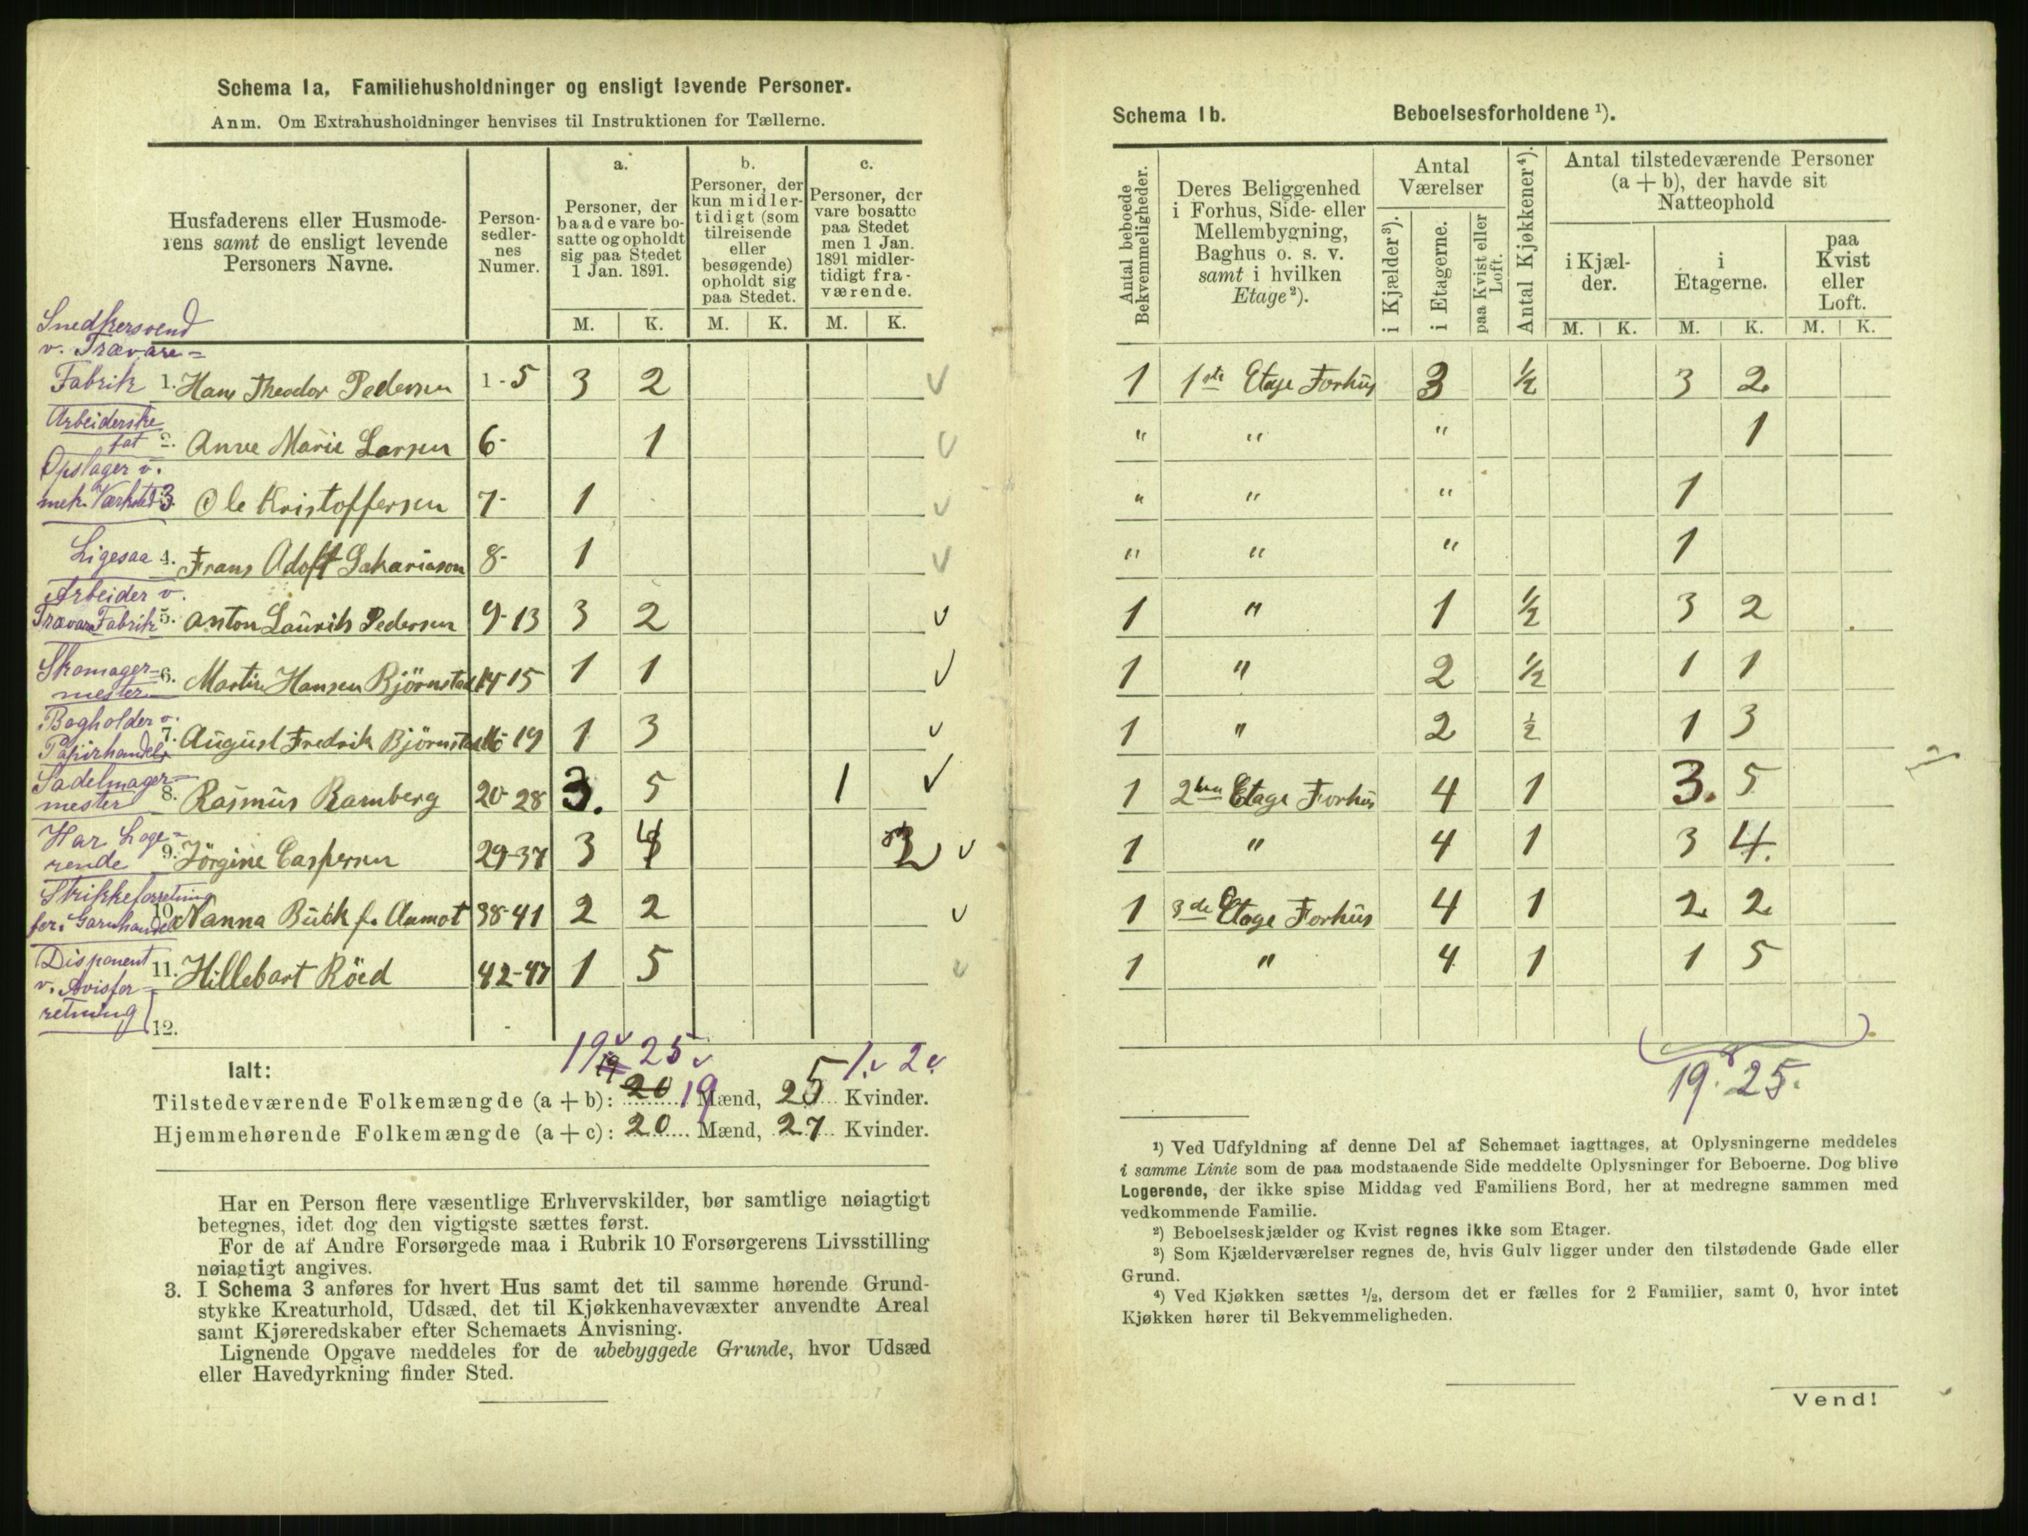 Schema 1a. Familiehusholdninger og ensligt levende Personer.
Anm. Om Extrahusholdninger henvises til Instruktionen for Tællerne.
Husfaderens eller Husmode-
rens samt de ensligt levende
Personers Navne.
Person-
sedler-
nes
Numer.
a.
Personer, der
baade vare bo-
satte og opholdt
sig paa Stedet
1 Jan. 1891.
b.
Personer, der
kun midler-
tidigt (som
tilreisende
eller
besøgende)
opholdt sig
paa Stedet.
c.
Personer, der
vare bosatte
paa Stedet
men 1 Jan.
1891 midler-
tidigt fra-
værende.
M. K. M. K. M. K.
Snedkersvend
v. Trævare=
Fabrik 1. Hans Theodor Pedersen 1-5 3 2
Arbeiderske
2. Anne Marie Larsen 6- 1
Opslager v.
mek. Værksted 3. Ole Kristoffersen 7- 1
Ligesaa 4. Frans Adolf Sakariason 8- 1
Arbeider v.
TrævareFabrik 5. Anton Laurits Pedersen 9-13 3 2
Skomager=
mester 6. Martin Hansen Björnstad 14-15 1 1
Bogholder v.
Papirhandel 7. August Fredrik Björnstad 16-19 1 3
Sadelmager=
mester 8. Rasmus Ramberg 20-28 3. 5 1
Har Loge=
rende 9. Jörgine Caspersen 29-37 3 4 2
Strikkeforretning
for Garnhandel 10. Nanna Buck f. Aamot 38-41 2 2
Disponent
v. Avisfor=
retning 11. Hillebart Röed 42-47 1 5
12.
19 25 1. 2.
Ialt:
Tilstedeværende Folkemængde (a + b): 20 19 Mænd, 25 Kvinder.
Hjemmehørende Folkemængde (a + c): 20 Mænd, 27 Kvinder.
Har en Person flere væsentlige Erhvervskilder, bør samtlige nøiagtigt
betegnes, idet dog den vigtigste sættes først.
For de af Andre Forsørgede maa i Rubrik 10 Forsørgerens Livsstilling
nøiagtigt angives.
3. I Schema 3 anføres for hvert Hus samt det til samme hørende Grund-
stykke Kreaturhold, Udsæd, det til Kjøkkenhavevæxter anvendte Areal
samt Kjøreredskaber efter Schemaets Anvisning.
Lignende Opgave meddeles for de ubebyggede Grunde, hvor Udsæd
eller Havedyrkning finder Sted.
Schema 1b. Beboelsesforholdene ¹).
Antal beboede
Bekvemmeligheder.
Deres Beliggenhed
i Forhus, Side- eller
Mellembygning,
Baghus o. s. v.
samt i hvilken
Etage ²).
Antal
Værelser
i Kjælder ³).
i Etagerne.
paa Kvist eller
Loft.
Antal Kjøkkener ⁴).
Antal tilstedeværende Personer
(a + b), der havde sit
Natteophold
i Kjæl-
der.
i
Etagerne.
paa
Kvist
eller
Loft.
M. K. M. K. M. K.
1 1ste Etage Forhus 3 ½ 3 2
" " " 1
" " " 1
" " " 1
1 " 1 ½ 3 2
1 " 2 ½ 1 1
1 " 2 ½ 1 3
1 2den Etage Forhus 4 1 3. 5
1 " 4 1 3 4.
1 3de Etage Forhus 4 1 2 2
1 " 4 1 1 5
19. 25.
¹) Ved Udfyldning af denne Del af Schemaet iagttages, at Oplysningerne meddeles
i samme Linie som de paa modstaaende Side meddelte Oplysninger for Beboerne. Dog blive
Logerende, der ikke spise Middag ved Familiens Bord, her at medregne sammen med
vedkommende Familie.
²) Beboelseskjælder og Kvist regnes ikke som Etager.
³) Som Kjælderværelser regnes de, hvis Gulv ligger under den tilstødende Gade eller
Grund.
⁴) Ved Kjøkken sættes ½, dersom det er fælles for 2 Familier, samt 0, hvor intet
Kjøkken hører til Bekvemmeligheden.
Vend!